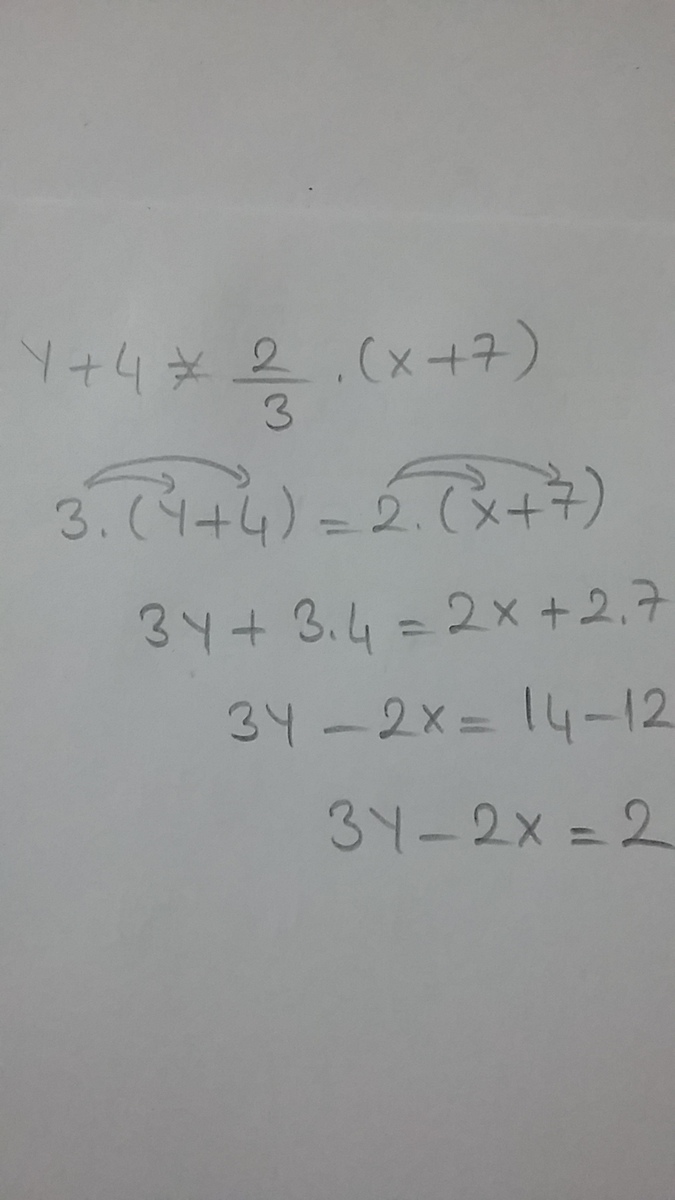 y + 4 = 2/3 . (x + 7)
3 . (y + 4) = 2 . (x + 7)
3y + 3.4 = 2x + 2.7
3y - 2x = 14 - 12
3y - 2x = 2